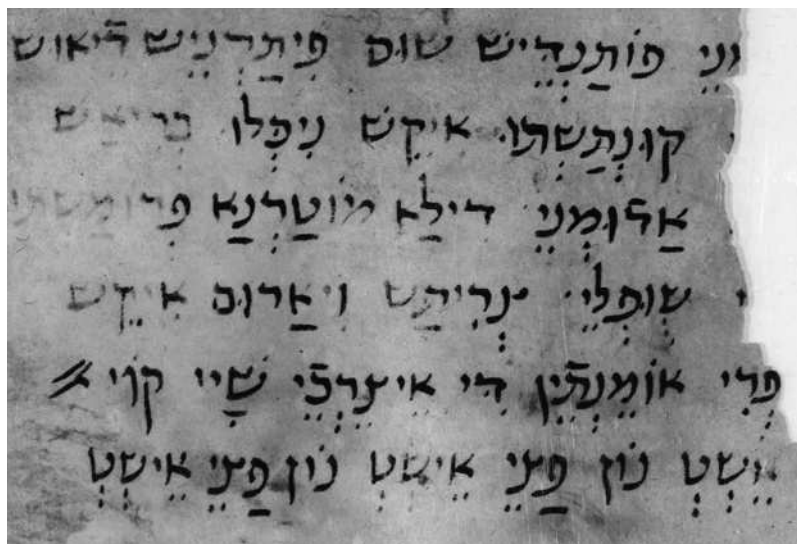 וֹנֵי פוֹתַנְדֵיש שוּס פִיתַרְנֵיש דֿיאוש
קוּנְתַשְתוּ אִיקֵש נִיפְּלוּ בְּרִיאַש
אַדוּמְנֵי דִילַא מוֹטַרְנַא פְרוּמַשְתי
שְוּפְלֵיי נְרִיתַש וִיאַרוּס אִיקֵש
פְרִי אוֹמֵנְבֿין דִי אֵיצֵרְבֵֿי שַׁיי קוֹוי
אֵשְטְ נוֹן פַצֵי אֵישְטְ נוֹן פַצֵי אֵישְטְ